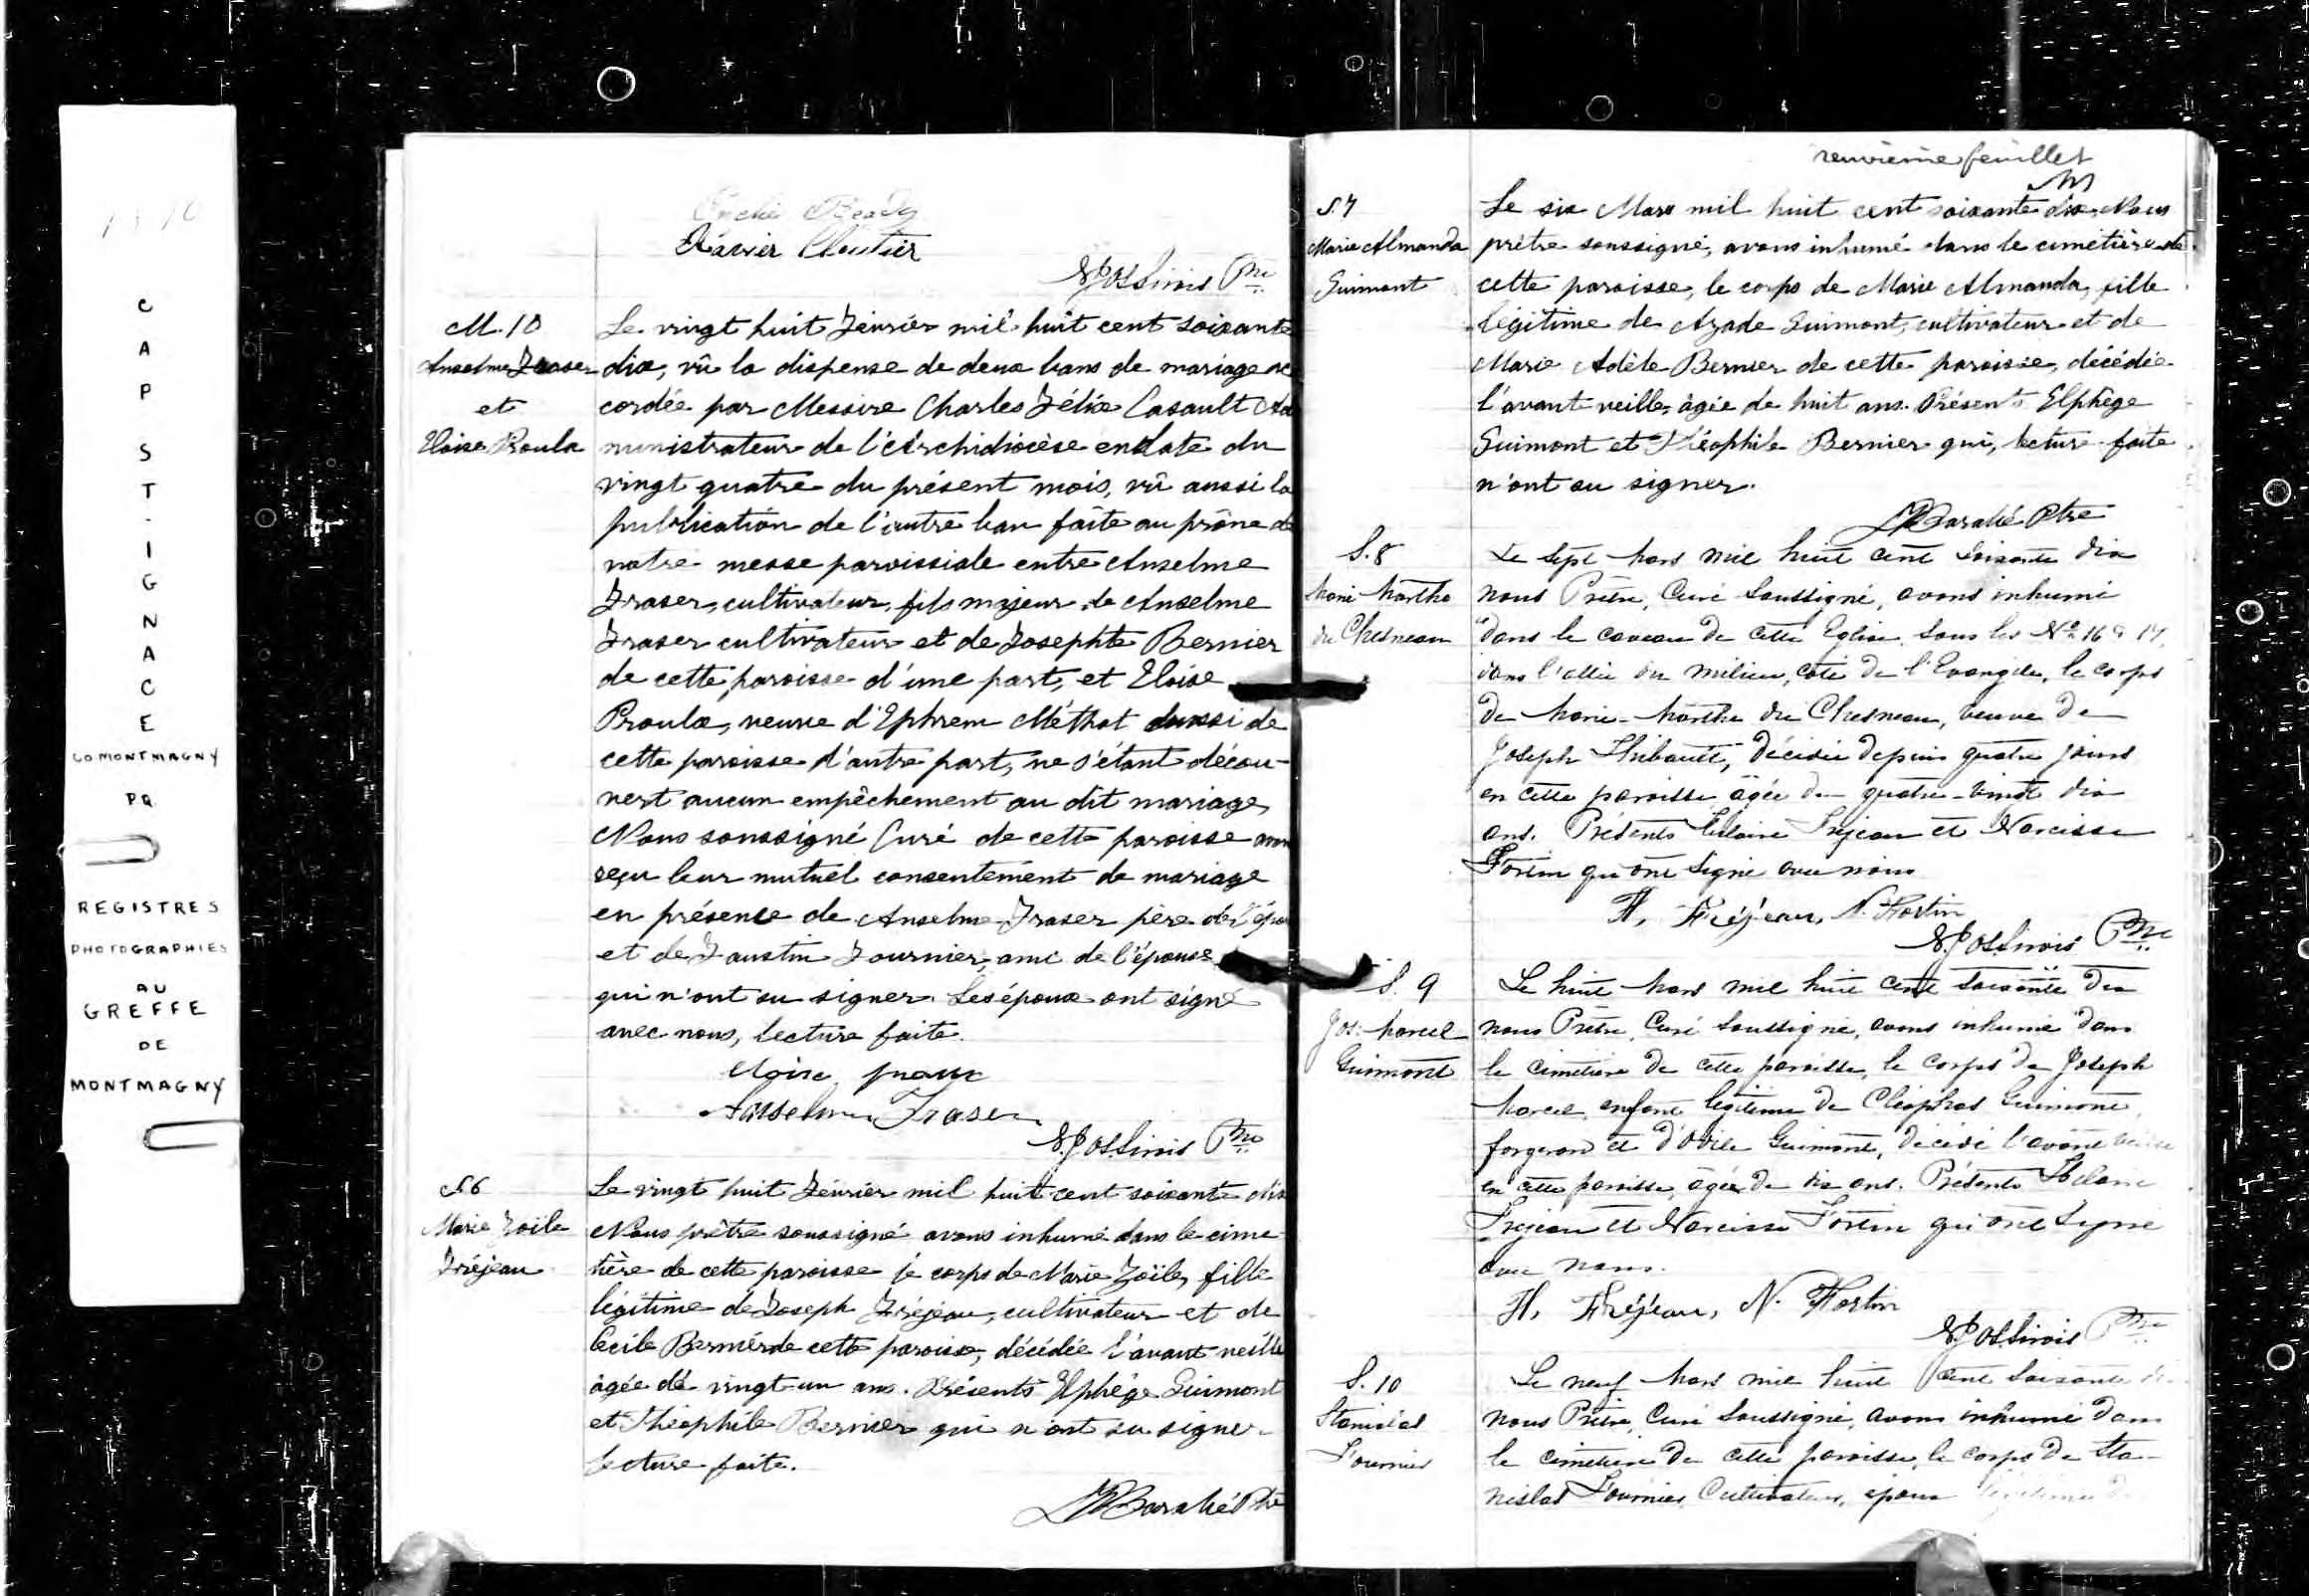 C
A
P
S
T
-
I
G
N
A
C
E
CO MONTMAGNY
P.Q.
REGISTRES
PHOTOGRAPHIES
AU
GREFFE
DE
MONTMAGNY
Xavier Cloutier
N. Jos Sirois Ptre
M. 10
Anselme Fraser
et
Eloise Proulx
Le vingt huit Février mil huit cent soixante
dix, vû la dispense de deux bans de mariage ac
cordée par Messire Charles Félix Casault Ad
ministrateur de l'Archidiocèse en date du
vingt quatre du présent mois, vû aussi la
publication de l'autre ban faite au prône de
notre messe paroissiale entre Anselme
Fraser, cultivateur, fils majeur de Anselme
Fraser cultivateur et de Josephte Bernier
de cette paroisse d'une part, et Eloise
Proulx, veuve d'Ephrem Méthot aussi de
cette paroisse d'autre part, ne s'étant décou-
vert aucun empêchement au dit mariage,
Nous soussigné Curé de cette paroisse avons
reçu leur mutuel consentement de mariage
en présence de Anselme Fraser père de l'époux
et de Faustin Fournier, ami de l'épouse
qui n'ont su signer. Les époux ont signé
avec nous, lecture faite.
Eloise proux
Anselme Fraser
N. Jos Sirois Ptre
S. 6
Marie Zoïle
Fréjeau
Le vingt huit Février mil huit cent soixante dix
Nous prêtre soussigné avons inhumé dans le cime-
tière de cette paroisse le corps de Marie Zoïle, fille
légitime de Joseph Fréjeau, cultivateur et de
Cécile Bernier de cette paroisse, décédée l'avant veille
âgée de vingt un ans. Présents Elphège Guimont
et Théophile Bernier qui n'ont su signer
lecture faite.
Baralié Ptre
neuvieme feuillet
S. 7
Marie Almanda
Guimont
Le six Mars mil huit cent soixante dix, Nous
prêtre soussigné, avons inhumé dans le cimetière de
cette paroisse, le corps de Marie Almanda, fille
légitime de Azade Guimont, cultivateur et de
Marie Adèle Bernier de cette paroisse, décédée
l'avant veille, âgée de huit ans. Présents Elphège
Guimont et Théophile Bernier qui, lecture faite
n'ont su signer.
Baralié Ptre
S. 8
Marie Marthe
du Chesneau
Le sept Mars mil huit cent soixante dix
nous Prêtre, Curé soussigné, avons inhumé
dans le caveau de cette Eglise, sous les Nos 16 & 17,
dans l'allée du milieu, côté de l'Evangile, le corps
de Marie-Marthe du Chesneau, veuve de
Joseph Thibault, décédée depuis quatre jours
en cette paroisse, âgée de quatre-vingt dix
ans. Présents Hilaire Fréjeau et Narcisse
Fortin qui ont signé avec nous
H, Fréjeau, N. Fortin
N. Jos Sirois Ptre
S. 9
Jos: Marcel
Guimont
Le huit Mars mil huit cent soixante dix
nous Prêtre, Curé soussigné, avons inhumé dans
le cimetière de cette paroisse, le corps de Joseph
Marcel, enfant légitime de Cléophas Guimont,
forgeron et d'Odile Guimont, décédé l'avant veille
en cette paroisse, âgé de dix ans. Présents Hilaire
Fréjeau et Narcisse Fortin qui ont signé
avec nous.
H, Fréjeau, N. Fortin
N. Jos Sirois Ptre
S. 10
Stanislas
Fournier
Le neuf Mars mil huit cent soixante dix
nous Prêtre, Curé soussigné, avons inhumé dans
le cimetière de cette paroisse, le corps de Sta-
nislas Fournier, Cultivateur, époux